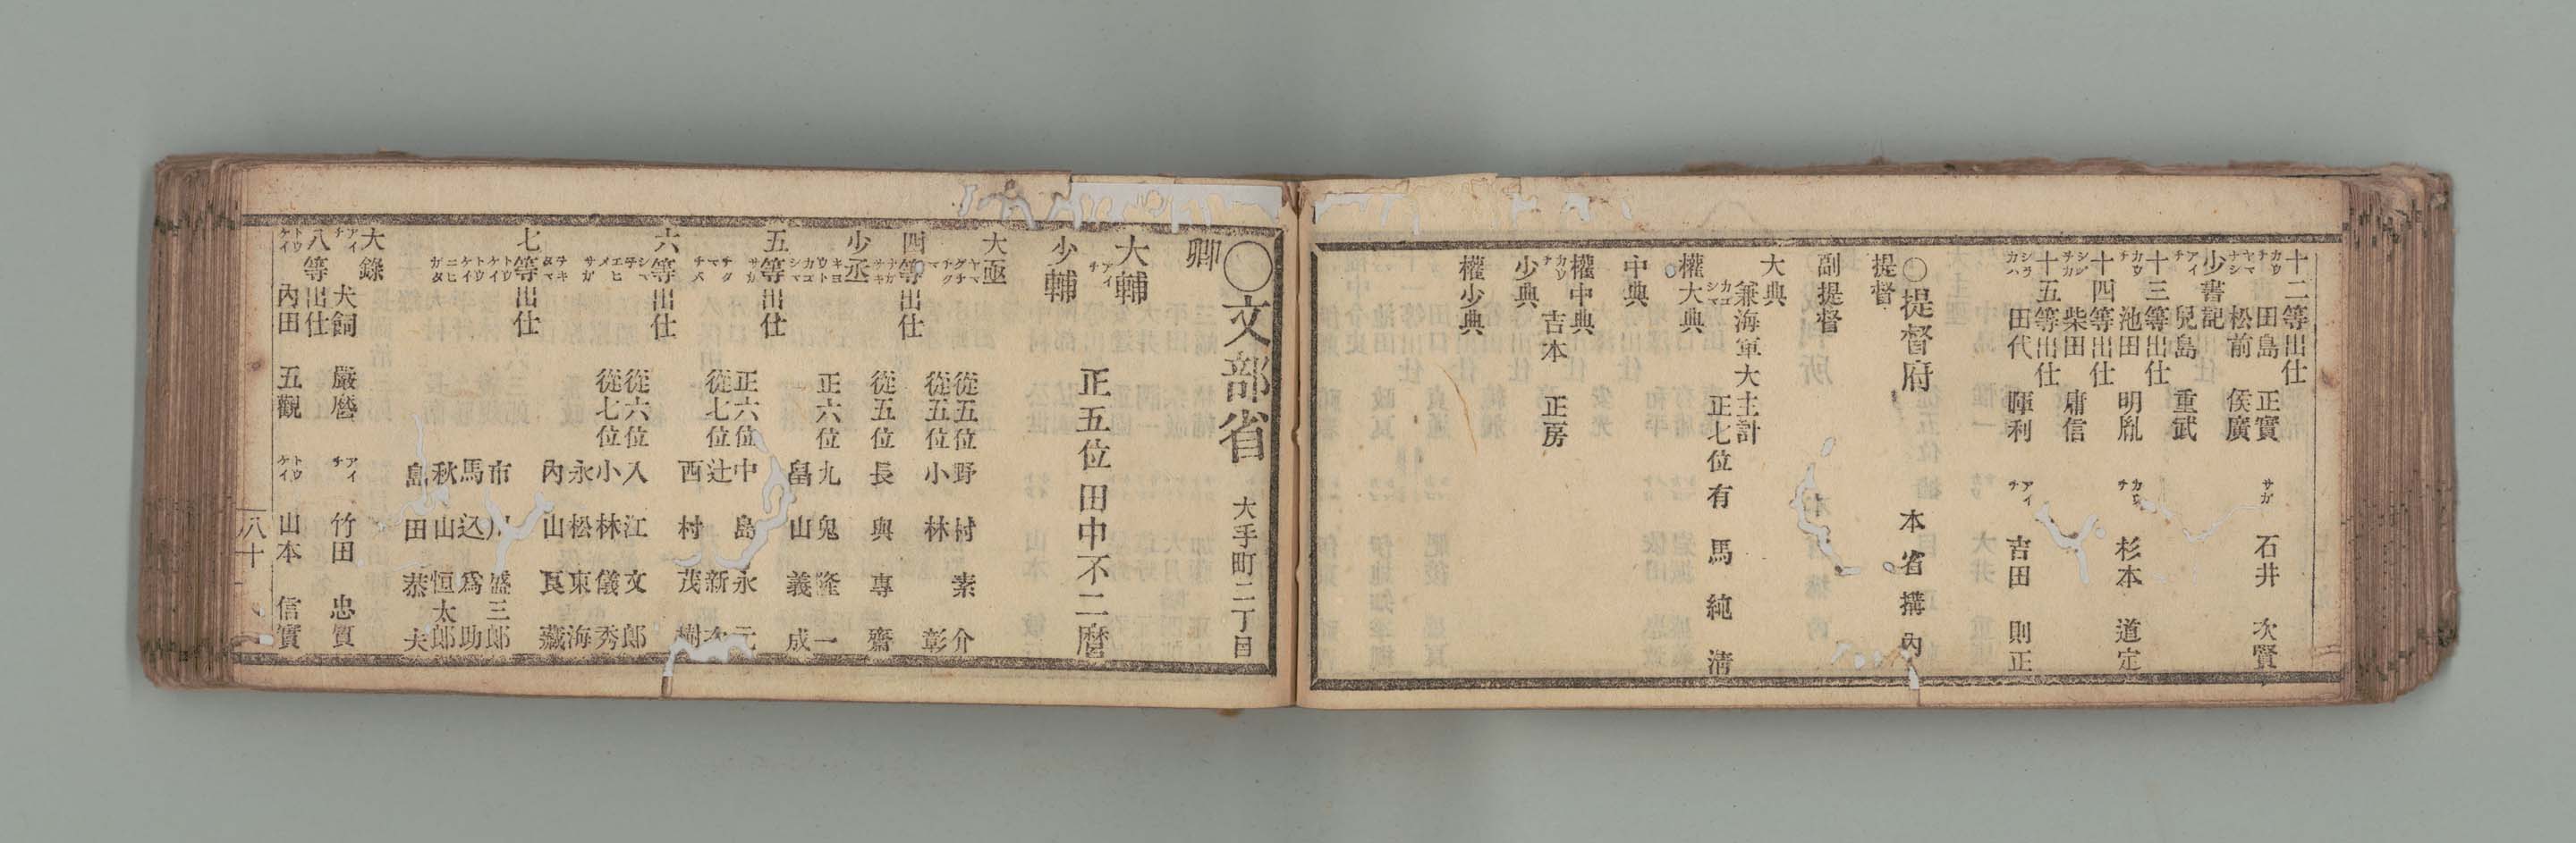 十二等出仕
カウチ 田島 正實 サガ 石井 次賢
ヤマナシ 松前 俟廣
少書記
アイチ 兒島 重武
十三等出仕
カウチ 池田 明胤 カウチ 杉本 道定
十四等出仕
シヅサカ 柴田 庸信
十五等出仕
シラカハ 田代 暉利 アイチ 吉田 則正
○提督府 本省搆內
提督
副提督
大典
兼海軍大主計
カゴシマ 正七位 有馬純淸
權大典
中典
權中典
カウチ 吉本 正房
少典
權少典
○文部省 大手町二丁目
卿
大輔
アイチ 正五位 田中不二麿
少輔
大丞
ヤマグチ 從五位 野村素介
從五位 小林彰
四等出仕
ナガサキ 從五位 長與專齋
少丞
キヨウト 正六位 九鬼隆一
カゴシマ 畠山義成
五等出仕
サガ 正六位 中島永元
チクマ 從七位 辻新次
チクマ 西村茂樹
六等出仕
シマ子 從六位 入江文郎
エヒメ 從七位 小林儀秀
サガ 永松東海
サキタマ 內山良藏
七等出仕
トウケイ 市川盛三郎
トウケイ 馬込爲助
ニヒガタ 秋山恒太郎
島田恭夫
大錄
アイチ 犬飼 嚴麿 アイチ 竹田 忠質
八等出仕
トウケイ 內田 五觀 トウケイ 山本 信實
八十